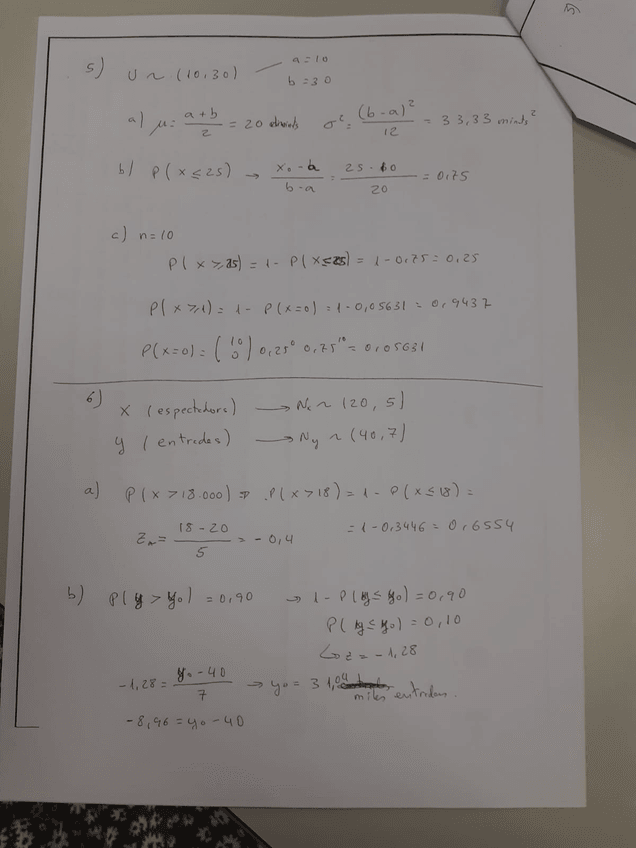 5) U ~ (10,30) a=10
b=30
a) μ = (a+b)/2 = 20 σ² = (b-a)²/12 = 33,33 mints²
b) P(x≤25) → (x₀-a)/(b-a) = (25-10)/20 = 0,75
c) n=10
P(x≥25) = 1- P(x≤25) = 1-0,75 = 0,25
P(x≥1) = 1- P(x=0) = 1-0,05631 = 0,9437
P(x=0) = (10 0) 0,25⁰ 0,75¹⁰ = 0,05631
6) x (espectadors) → Nx ~ (20, 5)
y (entrades) → Ny ~ (40,7)
a) P(x>18.000) ⇒ P(x>18) = 1- P(x≤18) =
= 1-0,3446 = 0,6554
Zm = (18-20)/5 = -0,4
b) P(y>y₀) = 0,90 → 1-P(y≤y₀) = 0,90
P(y≤y₀) = 0,10
↳ z = -1,28
-1,28 = (y₀-40)/7 → y₀ = 31,04 miles entrades.
-8,96 = y₀-40